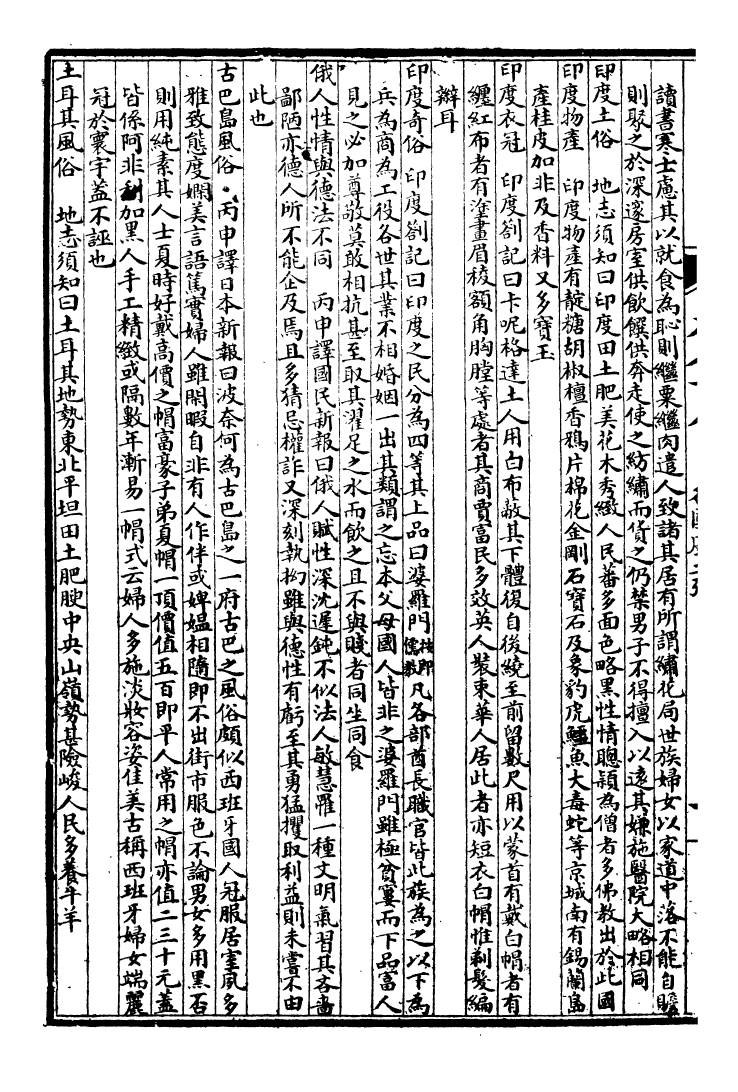 讀書寒士慮其以就食為恥則繼粟繼肉遣人致諸其居有所謂繡花局世族婦女以家道中落不能自贍
則聚之於深邃房室供飲饌供奔走使之紡繡而貨之仍禁男子不得擅入以遠其嫌施醫院大略相同
印度土俗　地志須知曰印度田土肥美花木秀緻人民蕃多面色略黑性情聰穎為僧者多佛教出於此國
印度物產　印度物產有靛糖胡椒檀香鴉片棉花金剛石寶石及象豹虎鱷魚大毒蛇等京城南有錫蘭島
產桂皮加非及香料又多寶玉
印度衣冠　印度劄記曰卡呢格達土人用白布蔽其下體復自後繞至前留數尺用以蒙首有戴白帽者有
纏紅布者有塗畫眉稜額角胸膛等處者其商賈富民多效英人裝束華人居此者亦短衣白帽惟剃髮編
辮耳
印度奇俗　印度劄記曰印度之民分為四等其上品曰婆羅門按即儒教凡各部酋長職官皆此族為之以下為
兵為商為工役各世其業不相婚姻一出其類謂之忘本父母國人皆非之婆羅門雖極貧窶而下品富人
見之必加尊敬莫敢相抗甚至取其濯足之水而飲之且不與賤者同坐同食
俄人性情與德法不同　丙申譯國民新報曰俄人賦性深沈遲鈍不似法人敏慧罹一種文明氣習其吝嗇
鄙陋亦德人所不能企及焉且多猜忌權詐又深刻執拗雖與德性有虧至其勇猛攫取利益則未嘗不由
此也
古巴島風俗　丙申譯日本新報曰波奈何為古巴島之一府古巴之風俗頗似西班牙國人冠服居室夙多
雅致態度嫻美言語篤實婦人雖閑暇自非有人作伴或婢媼相隨即不出街市服色不論男女多用黑石
則用純素其人士夏時好戴高價之帽富豪子弟夏帽一頂價值五百即平人常用之帽亦值二三十元蓋
皆係阿非利加黑人手工精緻或隔數年漸易一帽式云婦人多施淡妝容姿佳美古稱西班牙婦女端麗
冠於寰宇蓋不誣也
土耳其風俗　地志須知曰土耳其地勢東北平坦田土肥腴中央山嶺勢甚險峻人民多養牛羊